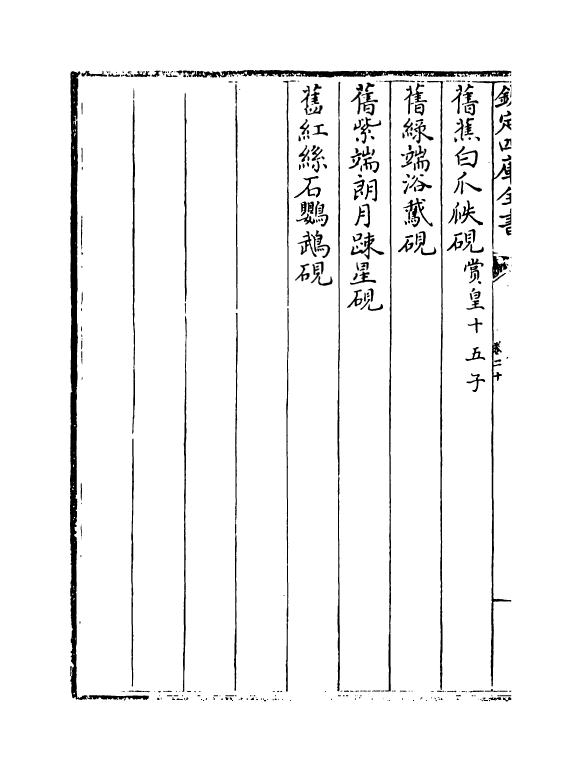 欽定四庫全書
卷二十
舊蕉白瓜瓞硯賞皇十五子
舊綠端浴鵞硯
舊紫端朗月踈星硯
舊紅絲石鸚鵡硯